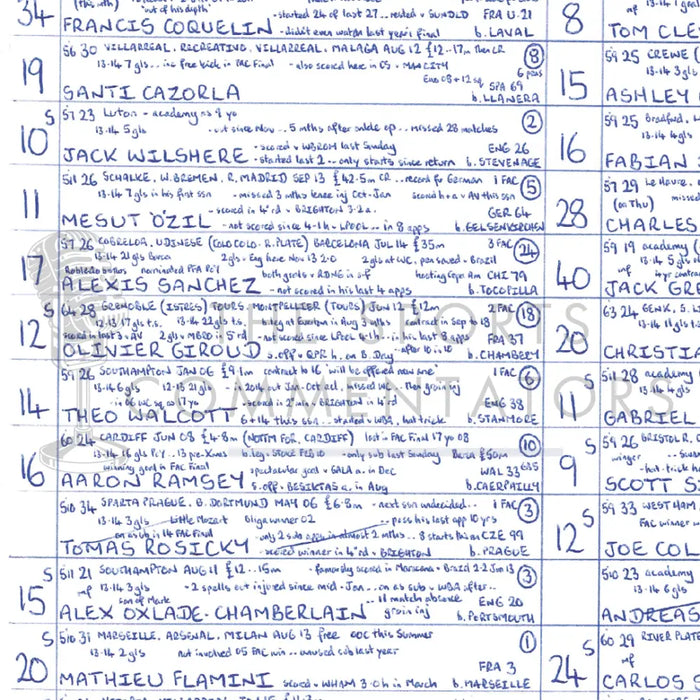 34
(this mth)
"out of his depth"
FRANCIS COQUELIN
- started 24 of last 27.. rested v SUNDLD
FRA U.21
- didn't even watch last year's final
b. LAVAL
19
56 30 VILLARREAL. RECREATIVO. VILLARREAL. MALAGA AUG 12 £12..17m Then CR
8
13.14 7gls.. inc free kick in FAC Final - also scored here in CS v MANCITY
6 pens
Euro 08 + 12 sq.
SPA 69
SANTI CAZORLA
b. LLANERA
S
10
57 23 Luton - academy as 9 yo
2
13.14 5gls
- out since Nov.. 5 mths after ankle op.. missed 28 matches
- scored v WBROM last Sunday
ENG 26
JACK WILSHERE
- started last 2.. only starts since return
b. STEVENAGE
11
511 26 SCHALKE. W.BREMEN. R.MADRID SEP 13 £42.5m CR.. record for German
1 FAC
5
13.14 7gls in his first ssn
- missed 3 mths knee inj Oct-Jan
scored h+a v AV this ssn
- scored in 4'rd v BRIGHTON 3.2 a.
GER 64
MESUT ÖZIL
- not scored since 4-1 h v LPOOL.. in 8 apps
b. GELSENKIRCHEN
17
57 26 COBRELOA. UDINESE (COLO COLO. R.PLATE) BARCELONA JUL 14 £35m
3 FAC
24
13.14 21gls Barca
2gls v Eng here Nov 13 2.0
2gls at WC. pen saved v Brazil
nominated PFA PoY
both goals v RDNG in s-f
hosting Copa Am
CHI 79
ALEXIS SANCHEZ
- not scored in his last 4 apps
b. TOCOPILLA
12
64 28 GRENOBLE (ISTRES) TOURS. MONTPELLIER (TOURS) JUN 12 £12m
2 FAC
18
12.13 17gls t.s.
13.14 22gls t.s.
leg at Everton in Aug 3 mths
contract in Sep to 18
scored in last 3 v AV
2gls v MBRO in 5'rd
- not scored since LPOOL 4.1h.. his last 8 apps
FRA 37
OLIVIER GIROUD
s.off v QPR h. on B.Day
- after 10 in 10
b. CHAMBERY
14
59 26 SOUTHAMPTON JAN 06 £9.1m contract to 16 'will be offered new one'
1 FAC
6
13.14 6gls
12.13 21gls
- in 2014 out Jan-Oct rel.. missed WC.. then groin inj
- in 06 WC sq. as 17yo
- scored in 2'min v BRIGHTON in 4'rd
ENG 38
THEO WALCOTT
6+14 this ssn.. started v WBA.. hat trick
b. STANMORE
16
60 24 CARDIFF JUN 08 £4.8m (NOTTM FOR. CARDIFF) lost in FAC Final 17yo 08
10
13.14 16gls PoY.. 13 pre-Xmas
b.leg v STOKE FEB 10
- only sub last Sunday
Bale £50m
winning goal in FAC Final
spectacular goal v GALA a. in Dec
WAL 33
AARON RAMSEY
s.off v BESIKTAS a. in Aug
b. CAERPHILLY
510 34 SPARTA PRAGUE. B.DORTMUND MAY 06 £6.8m - next ssn undecided..
1 FAC
3
13.14 3gls
Little Mozart
Oly winner 02
.. poss his last app 10 yrs
on as sub in 14 FAC Final
- only 2 sub apps in almost 2 mths.. 8 starts PL
CZE 99
TOMAS ROSICKY
- scored winner in 4'rd v BRIGHTON
b. PRAGUE
S
15
511 21 SOUTHAMPTON AUG 11 £12..15m
- famously scored in Maracana v Brazil 2.2 Jun 13
3
mf
13.14 3gls
- 2 spells out injured since mid-Jan.. on as sub v WBA after..
son of Mark
.. 11 match absence
ENG 20
ALEX OXLADE-CHAMBERLAIN
groin inj
b. PORTSMOUTH
S
20
510 31 MARSEILLE. ARSENAL. MILAN AUG 13 free
OOC this Summer
1
13.14 2gls
not involved 05 FAC win.. unused sub last year
FRA 3
MATHIEU FLAMINI
scored v WHAM 3.0 h in March
b. MARSEILLE
8
13.14 1 goal
TOM CLE
15
59 25 CREWE (
13.14 3gls
ASHLEY
16
59 25 Bradford.
13.14 4gls
FABIAN
28
57 29 Le Havre.
(on Thu)
missed
CHARLES
40
59 19 academy (
13.14 5gls
mf
JACK GRE
20
63 24 GENK. S.L
CHRISTIA
S
11
511 28 academy
GABRIEL
S
9
59 26 BRISTOL R.
winger
- hat-trick h
SCOTT S
S
12
59 33 WEST HAM
FAC winner
JOE COL
510 23 academy
13.14
mf
ANDREAS
S
24
60 29 RIVER PLATE
mf
CARLOS
THE SPORTS
COMMENTATORS